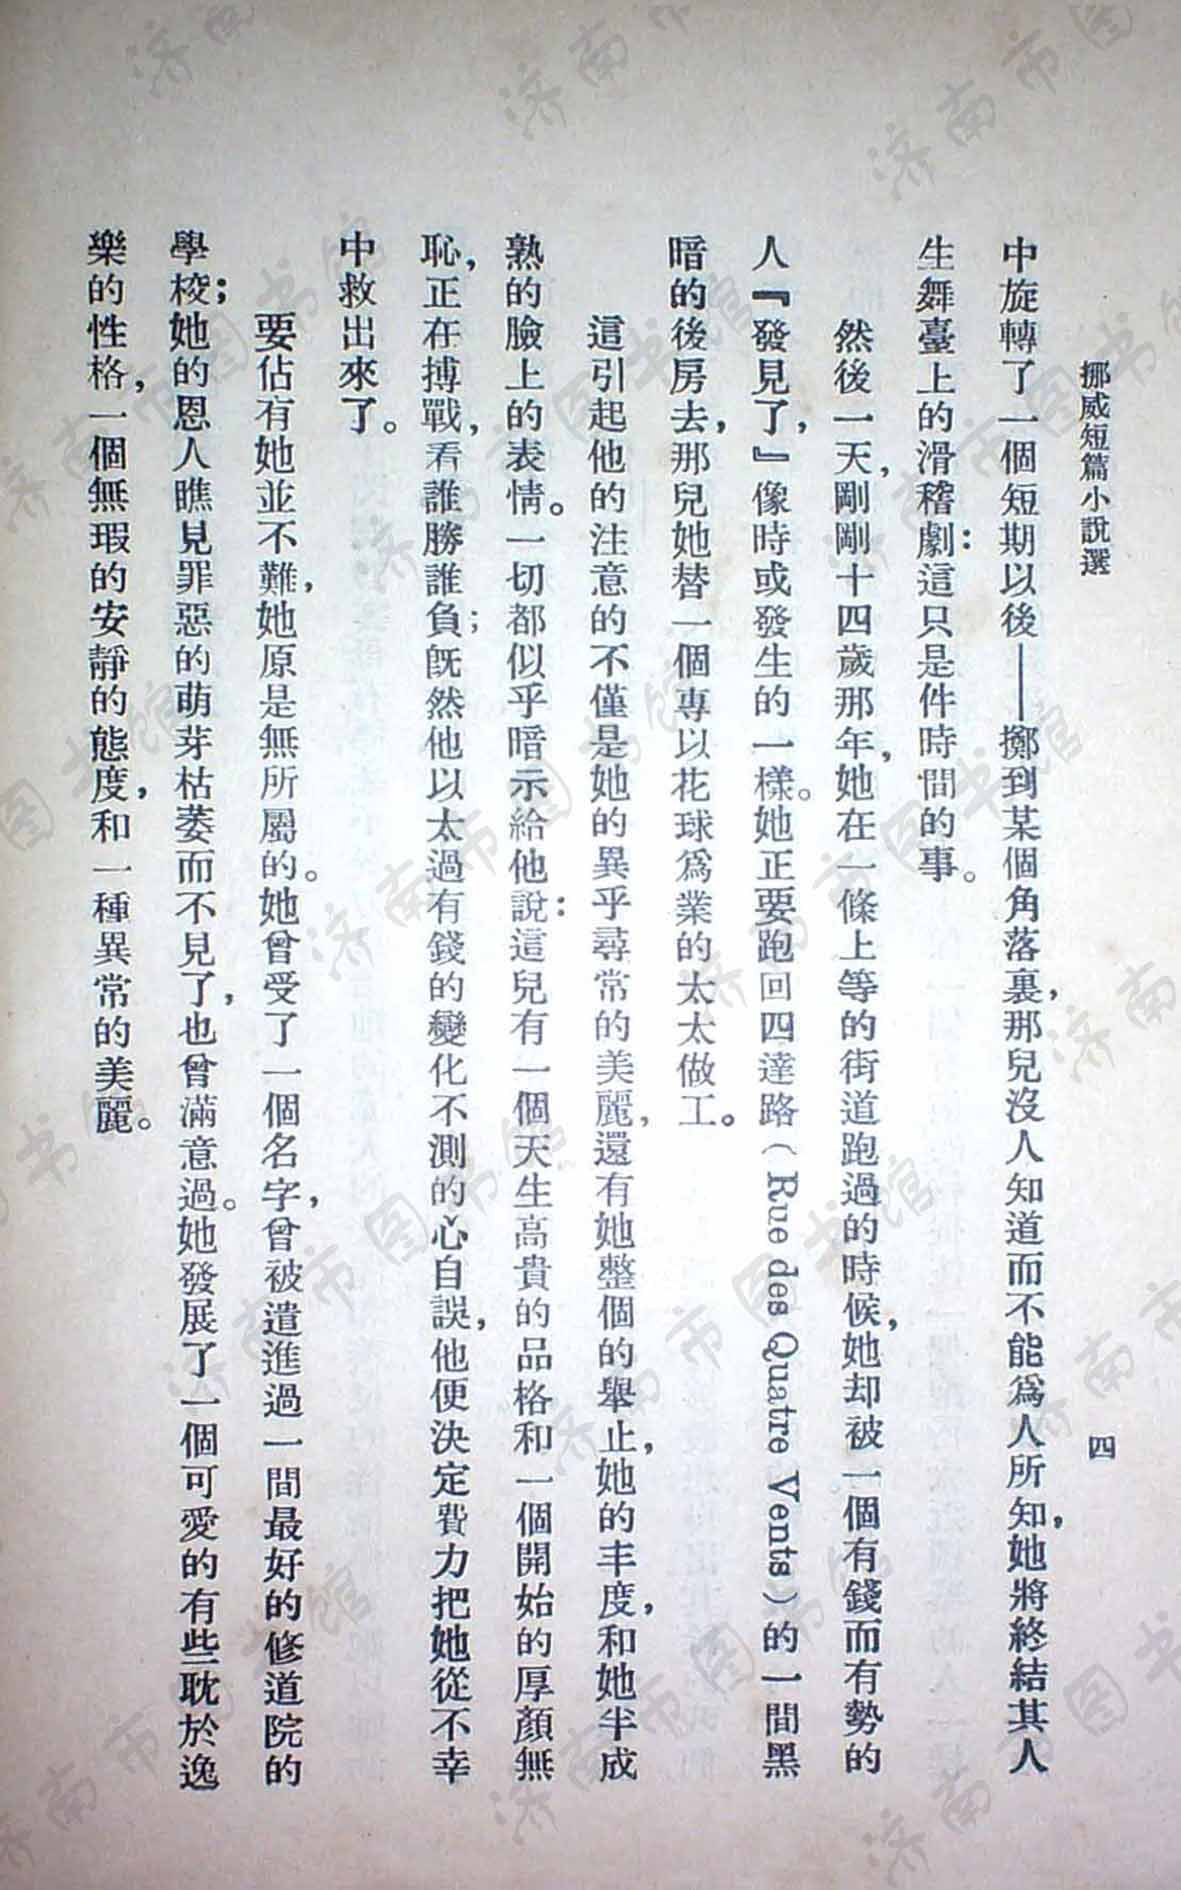 挪威短篇小說選
四
中旋轉了一個短期以後——擲到某個角落裏，那兒沒人知道而不能爲人所知，她將終結其人
生舞臺上的滑稽劇：這只是件時間的事。
然後一天，剛剛十四歲那年，她在一條上等的街道跑過的時候，她却被一個有錢而有勢的
人『發見了，』像時或發生的一樣。她正要跑回四達路（Rue des Quatre Vents）的一間黑
暗的後房去，那兒她替一個專以花球爲業的太太做工。
這引起他的注意的不僅是她的異乎尋常的美麗，還有她整個的舉止，她的丰度，和她半成
熟的臉上的表情。一切都似乎暗示給他說：這兒有一個天生高貴的品格和一個開始的厚顏無
恥，正在搏戰，看誰勝誰負；旣然他以太過有錢的變化不測的心自誤，他便決定費力把她從不幸
中救出來了。
要佔有她並不難，她原是無所屬的。她曾受了一個名字，曾被遣進過一間最好的修道院的
學校；她的恩人瞧見罪惡的萌芽枯萎而不見了，也曾滿意過。她發展了一個可愛的有些耽於逸
樂的性格，一個無瑕的安靜的態度，和一種異常的美麗。
济南市图书馆